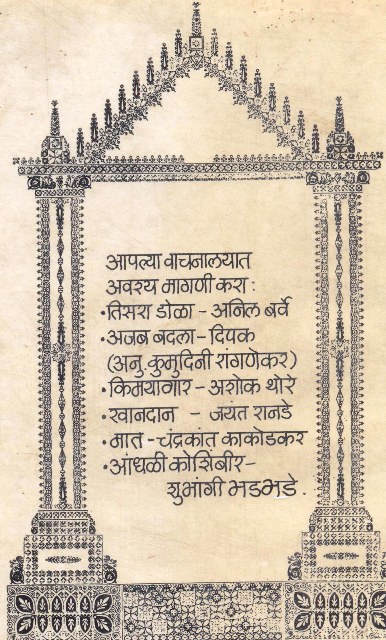 आपल्या वाचनालयात
अवश्य मागणी करा :
•तिसरा डोळा - अनिल बर्वे
•अजब बदला - दिपक
(अनु. कुमुदिनी रांगणेकर)
•किमयागार - अशोक थोरे
•खानदान - जयंत रानडे
•मात - चंद्रकांत काकोडकर
•आंधळी कोशिंबीर -
शुभांगी भडभडे.